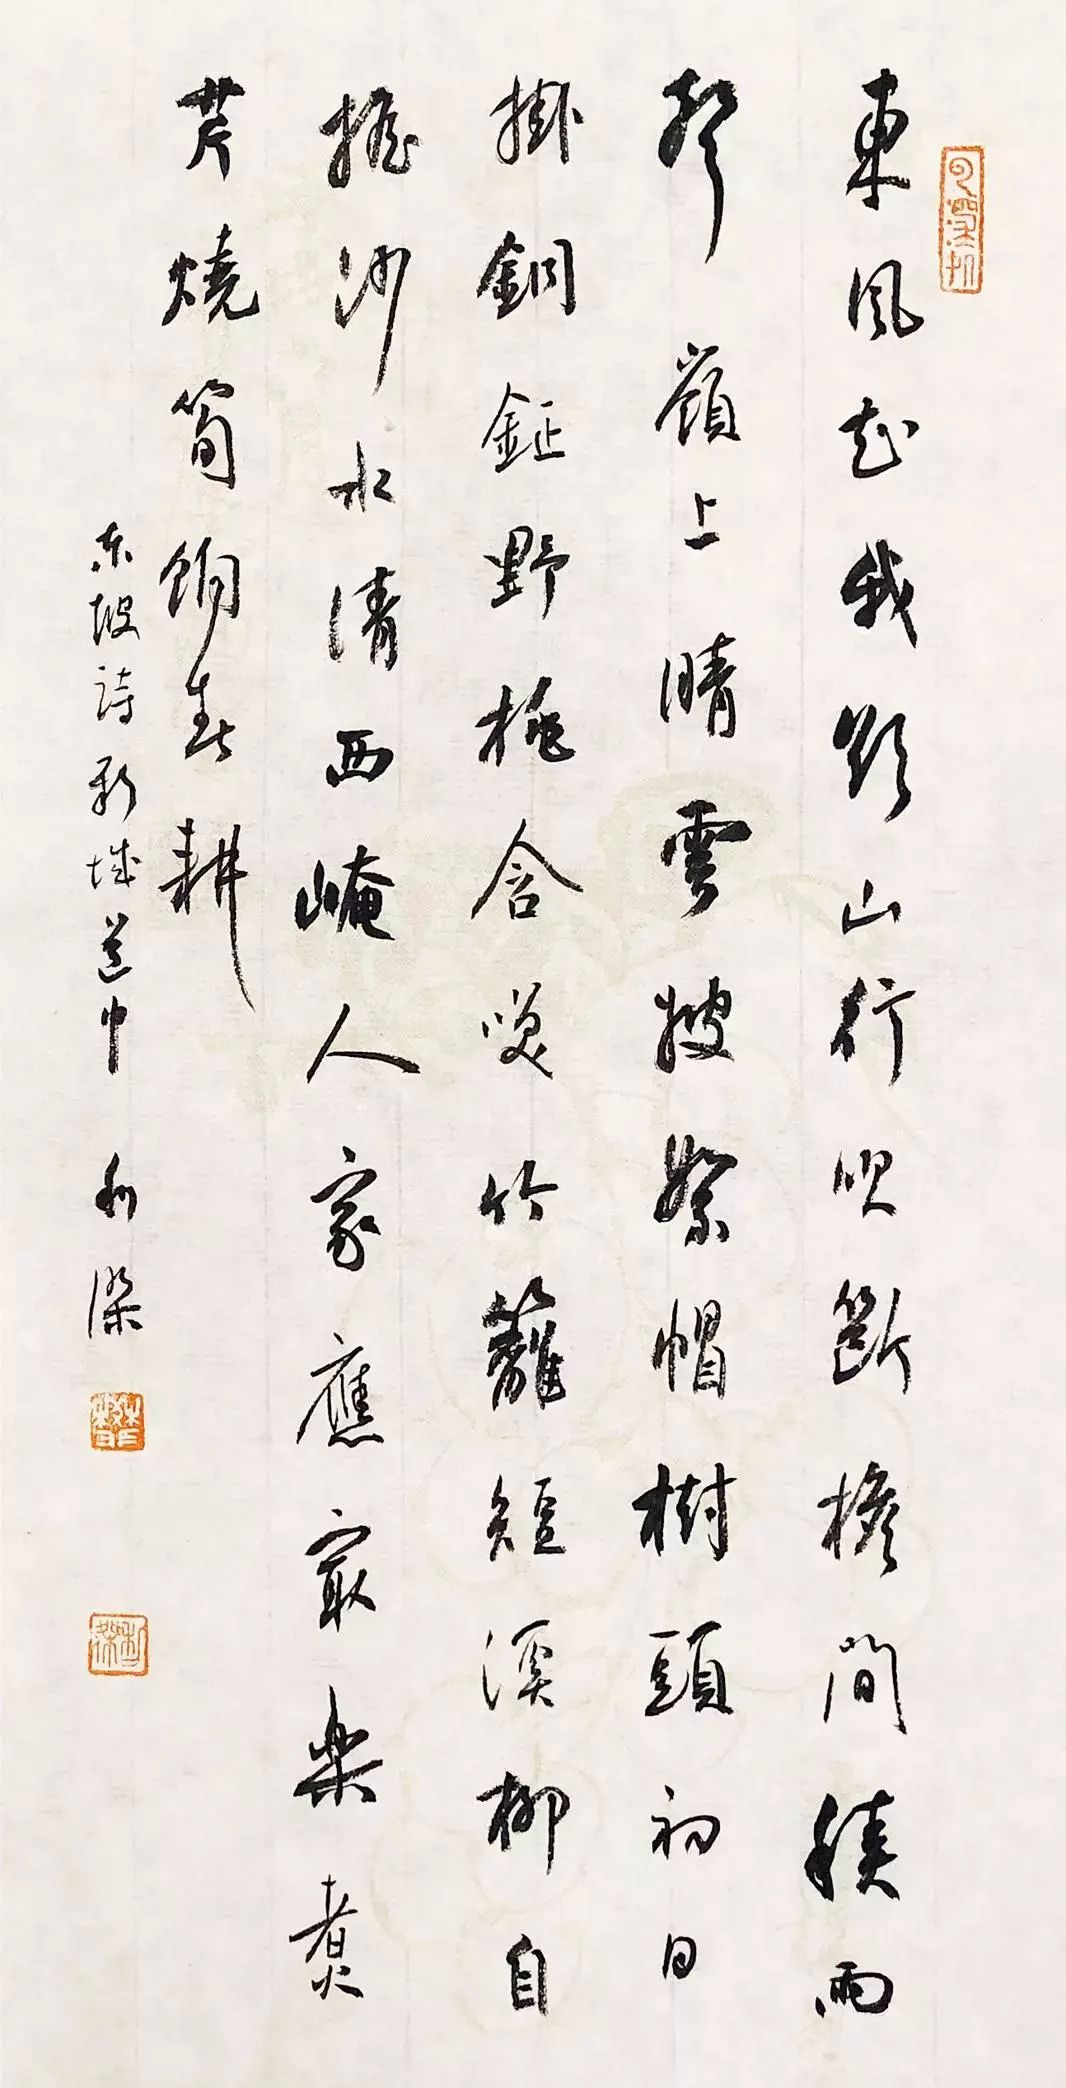 東風知我欲山行吹斷檐間積雨
聲嶺上晴雲披絮帽樹頭初日
掛銅鉦野桃含咲竹籬短溪柳自
搖沙水清西崦人家應冣樂煮
芹燒筍餉春耕
东坡詩新城道中